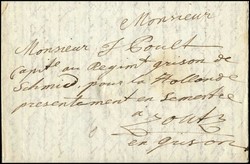 Monsieur
Monsieur J Coult
Capit. au Regimt grison de
Schmid pour la Hollande
presentement en Semestre
a Coutz
en grison